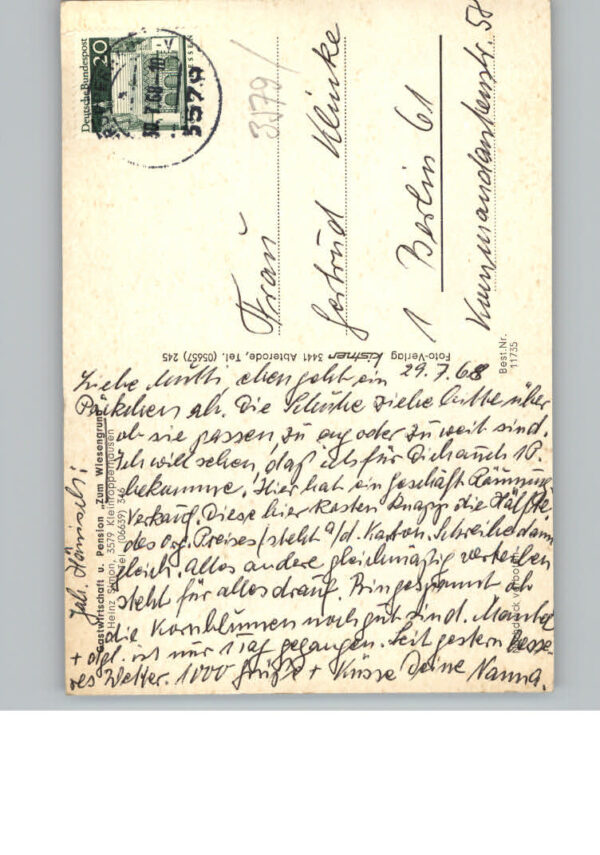 Deutsche Bundespost
20
LORSCH HESSEN
30.7.68
3579
3579/
Frau
Gertrud Klinke
1 Berlin 61
Kommandantenstr. 58
Foto-Verlag kistner 3441 Abterode, Tel. (05657) 245
Best.Nr.
11735
Gastwirtschaft u. Pension „Zum Wiesengrund“
Heinz Simon, 3579 Kleinropperhausen
Tel. (06639) 346
29.7.68
Liebe Mutti, eben geht ein
Päckchen ab. Die Schuhe ziehe bitte über
ob sie passen, zu eng oder zu weit sind.
Ich will sehen, daß ich für Dich auch 1 P.
bekomme. Hier hat ein Geschäft Räumungs-
verkauf. Diese hier kosten knapp die Hälfte
des Preises/steht a/d. Karton. Schreibe dann
gleich. Alles andere gleichmäßig verteilen
steht für alles drauf. Bin gespannt ob
die Kornblumen noch gut sind.
+ dgl. ist nur 1 Tag gegangen. Seit gestern besse-
res Wetter. 1000 Grüße + Küsse Deine Nanna.